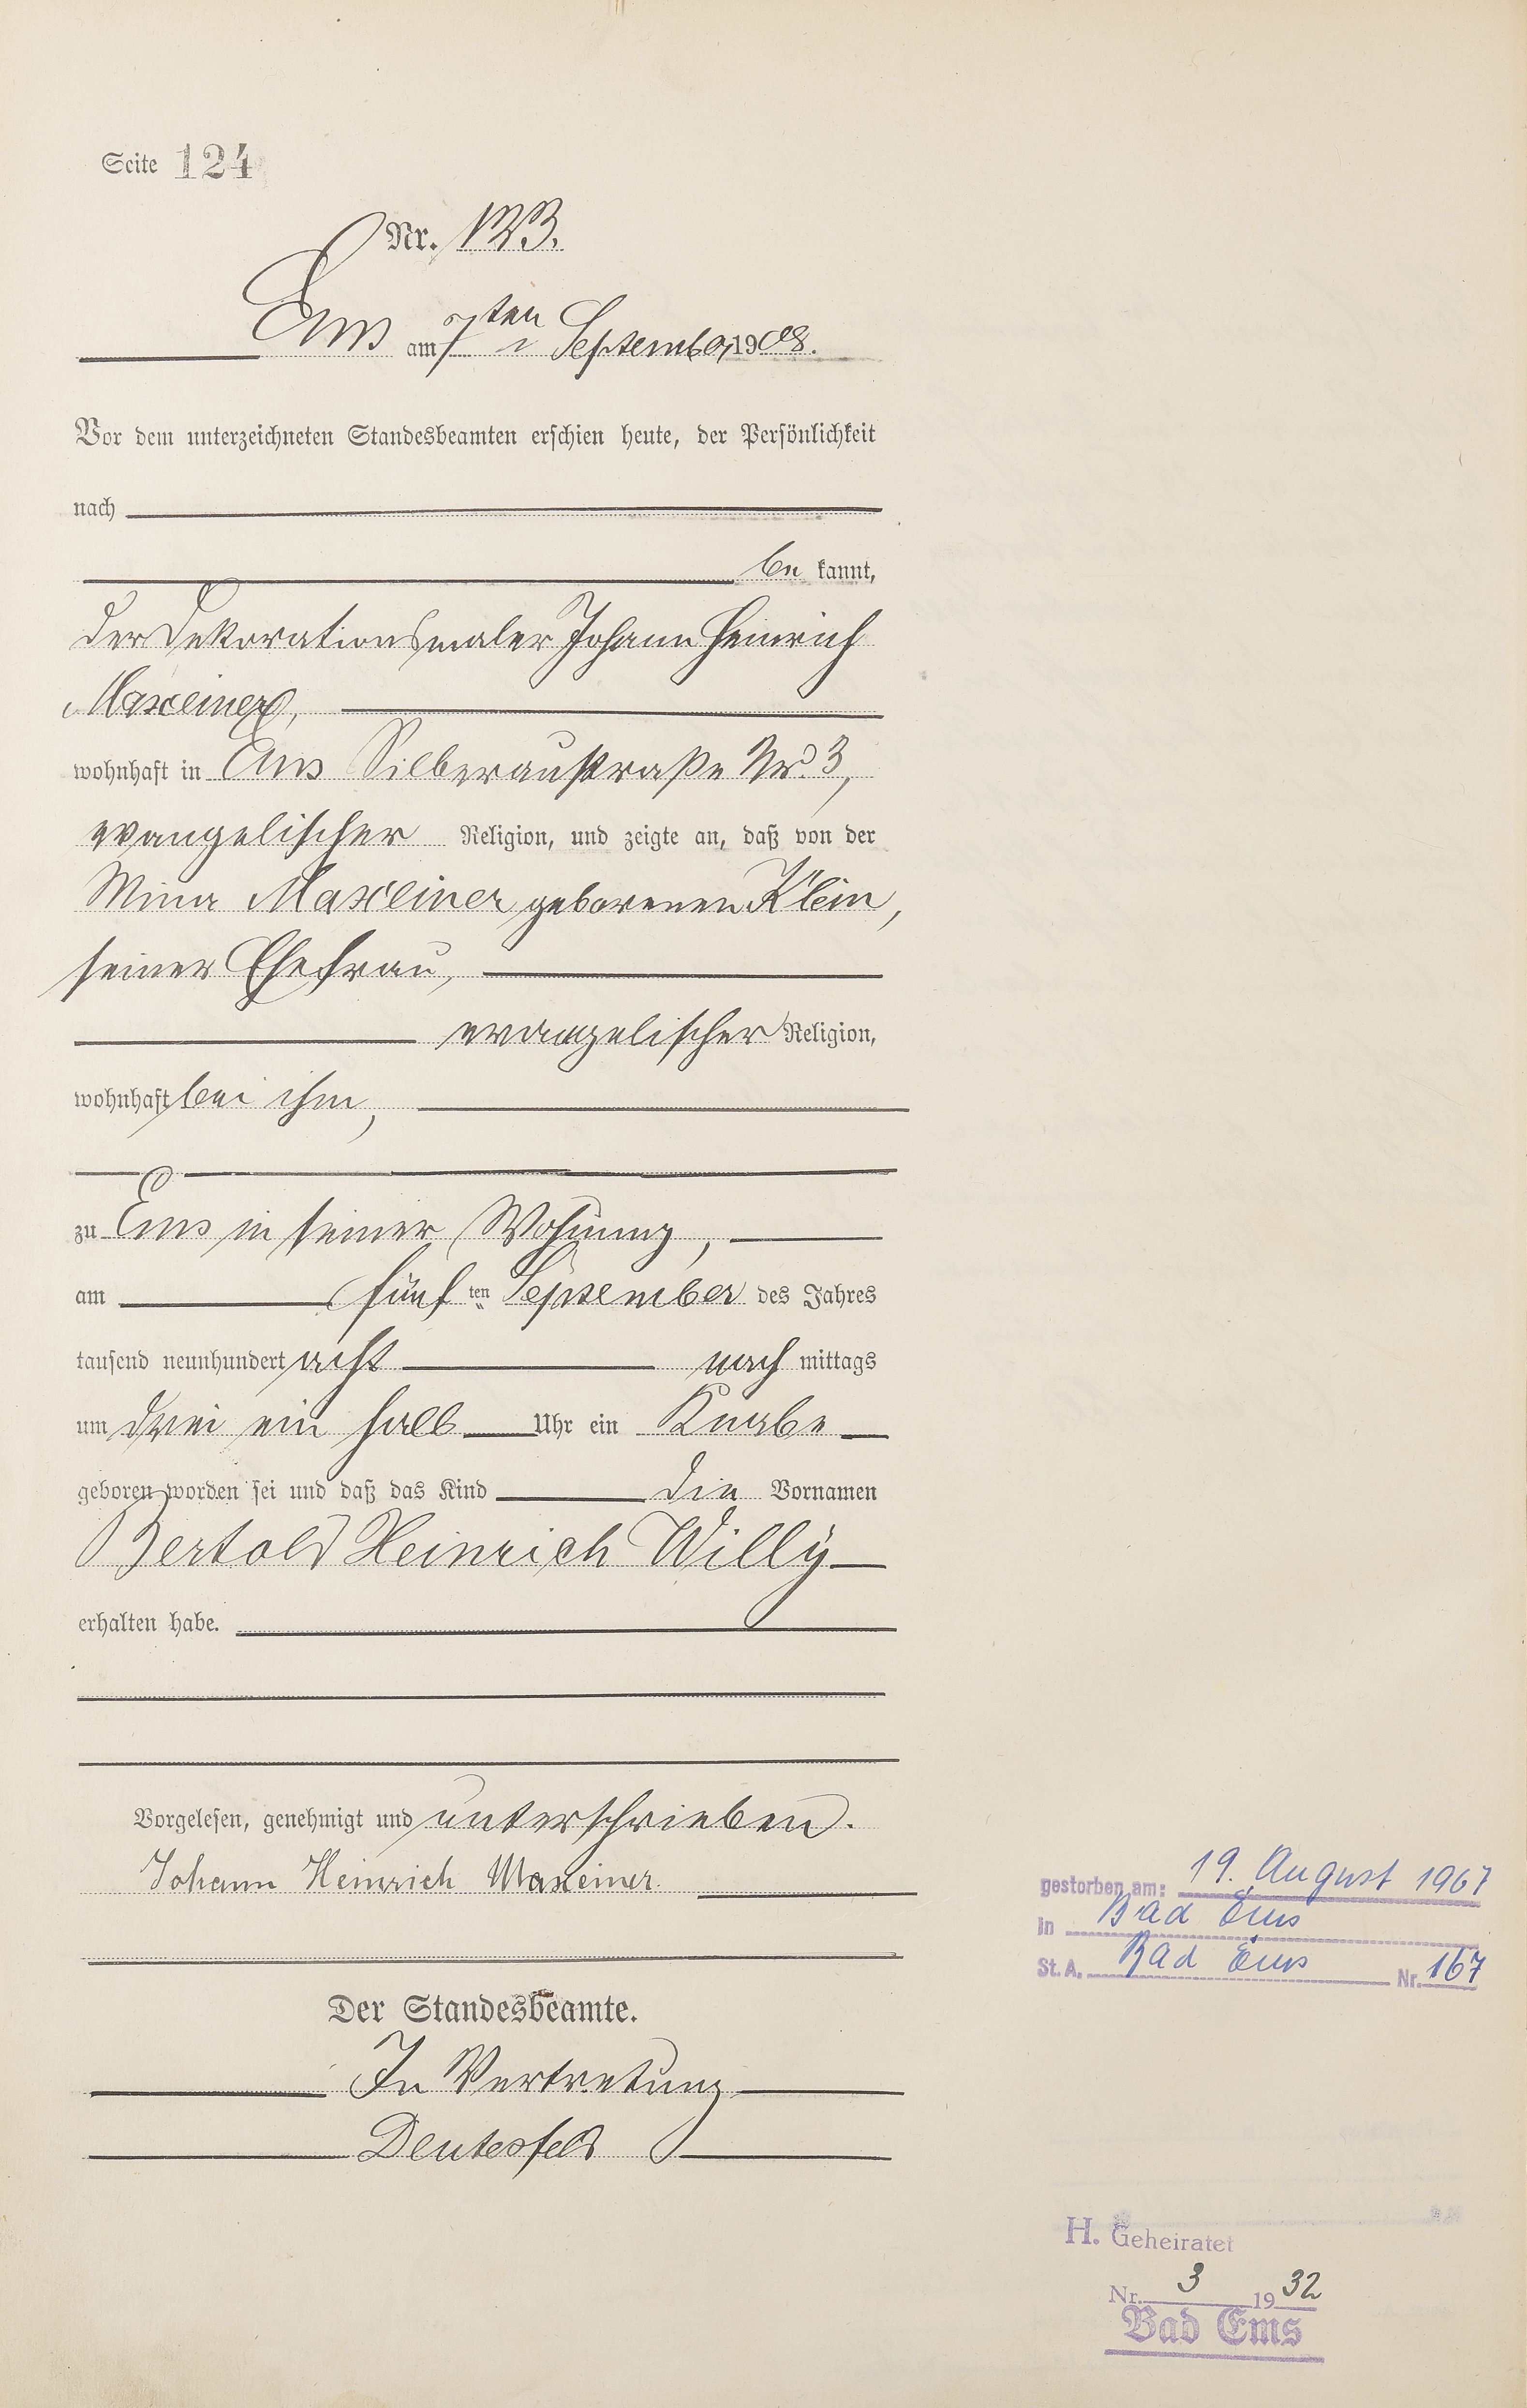 Seite 124
Nr. 123.
Ems am 7ten September 1908.
Vor dem unterzeichneten Standesbeamten erschien heute, der Persönlichkeit
nach
be kannt,
der Dekorationsmaler Johann Heinrich
Maxeiner,
wohnhaft in Ems Silberaustraße Nr. 3,
evangelischer Religion, und zeigte an, daß von der
Mina Maxeiner geborenen Klein,
seiner Ehefrau,
evangelischer Religion,
wohnhaft bei ihm,
zu Ems in seiner Wohnung,
am fünf ten September des Jahres
tausend neunhundert acht nach mittags
um drei ein halb Uhr ein Knabe
geboren worden sei und daß das Kind die Vornamen
Bertold Heinrich Willy
erhalten habe.
Vorgelesen, genehmigt und unterschrieben.
Johann Heinrich Maxeiner.
Der Standesbeamte.
In Vertretung
Deutesfeld
gestorben am: 19. August 1967
in Bad Ems
St. A. Bad Ems Nr. 167
H. Geheiratet
Nr. 3 1932
Bad Ems